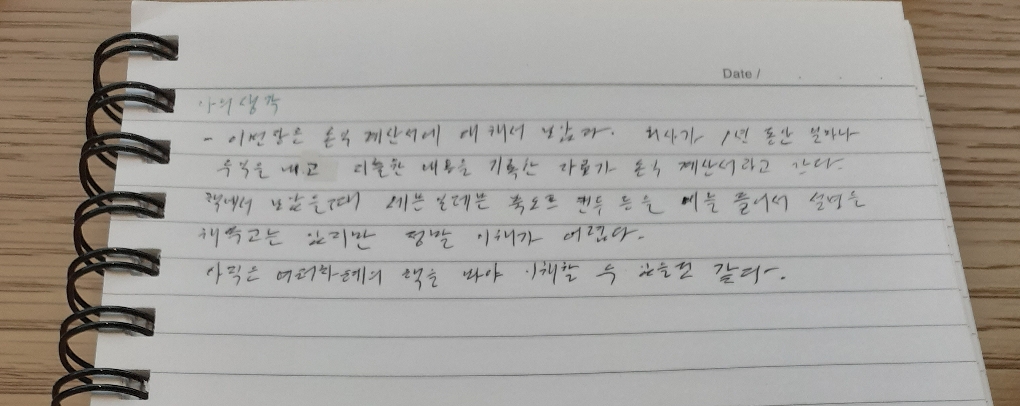 Date /
나의 생각
- 이번장은 손익 계산서에 대해서 보았다. 회사가 1년 동안 얼마나
수익을 내고 지출한 내용을 기록한 자료가 손익 계산서라고 한다.
책에서 보았을때 세븐일레븐 등을 예를 들어서 설명을
해주고는 있지만 정말 이해가 어렵다.
아직은 여러차례의 책을 봐야 이해할 수 있을것 같다.